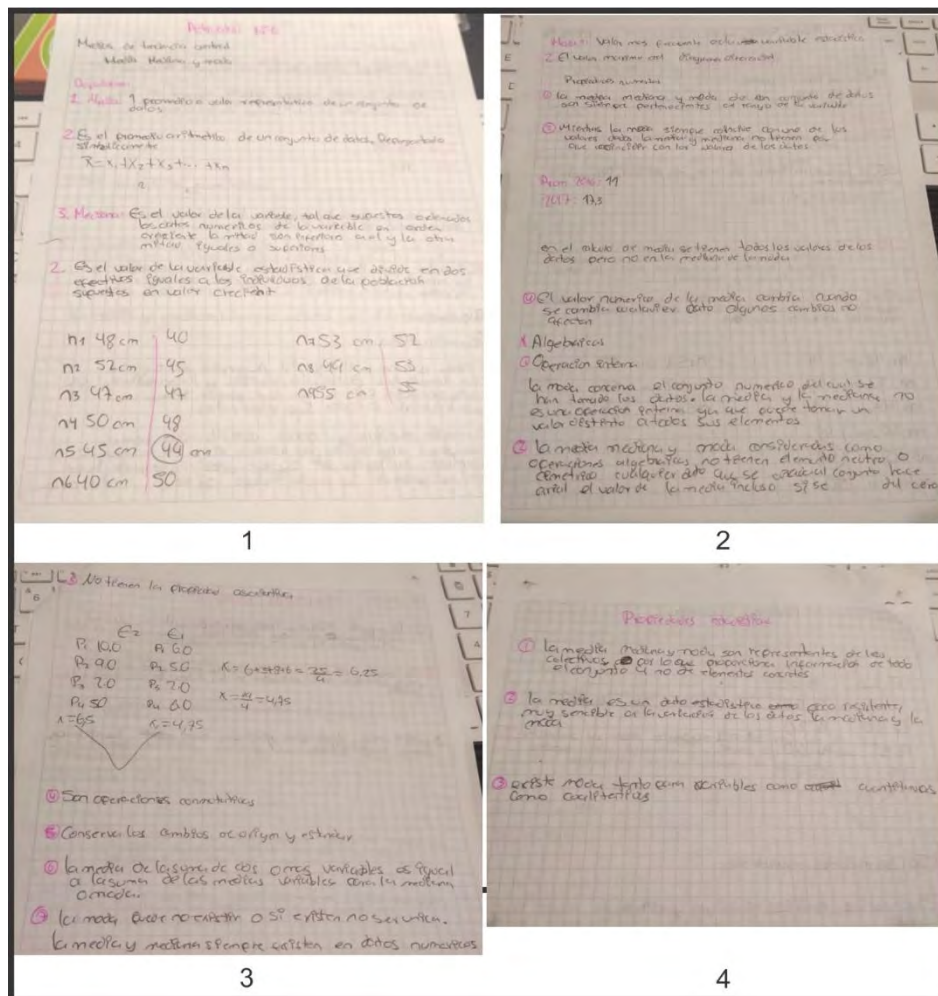 Medidas de tendencia central
Media Mediana y moda
1. Media: 1 promedio o valor representativo de un conjunto de
datos
2. Es el promedio aritmetico de un conjunto de datos,
x̄ = x1 + x2 + x3 + ... + xn
3. Mediana: Es el valor de la variable, tal que supuestos ordenados
los datos numericos de la variable en orden
creciente la mitad son inferiores a el y la otra
mitad iguales o superiores
2. Es el valor de la variable estadistica que divide en dos
efectivos iguales a los individuos de la poblacion
supuestos en valor
n1 48 cm 40
n2 52 cm 45
n3 47 cm 47
n4 50 cm 48
n5 45 cm 49 cm
n6 40 cm 50
n7 53 cm 52
n8 49 cm 53
n9 55 cm 55
1
Valor mas frecuente variable estadistica
2. El valor maximo del diagrama diferencial
Propiedades numericas
① la media mediana y moda de un conjunto de datos
son siempre pertenecientes al rango de la variable
② Mientras la moda siempre coincide con uno de los
valores datos la media y mediana no tienen por
que coincidir con los valores de los datos
11
2017: 17,3
en el calculo de media se tienen todos los valores de los
datos pero no en la mediana de la moda
④ El valor numerico de la media cambia cuando
se cambia cualquier dato algunos cambios no
afectan
Algebraicas
① Operacion interna
la moda conserva el conjunto numerico del cual se
han tomado los datos. la media y la mediana no
es una operacion interna ya que puede tomar un
valor distinto a todos sus elementos
② la media mediana y moda consideradas como
operaciones algebraicas no tienen elemento neutro o
simetrico cualquier dato que se al conjunto hace
el valor de la media incluso si se del cero
2
3. No tienen la propiedad asociativa
E2 E1
P1 10,0 P1 6.0
P2 9.0 P2 5.0
P3 7.0 P3 2.0
P4 5.0 P4 6.0
x=6.5 x=4,75
= 6,25
= 4,75
④ Son operaciones conmutativas
⑤ Conserva los cambios de origen y
⑥ la media de la suma de dos variables es igual
a la suma de las medias variables la mediana
o moda.
⑦ la moda puede no existir o si existen no ser unica.
la media y mediana siempre existen en datos numericos
3
Propiedades estadisticas
① la media mediana y moda son representantes de los
colectivos por lo que proporciona informacion de todo
el conjunto y no de elementos concretos
② la media es un dato estadistico poco resistente,
muy sensible a la variacion de los datos la mediana y la
moda
③ existe moda tanto para variables como cuantitivas
como cualitativas
4